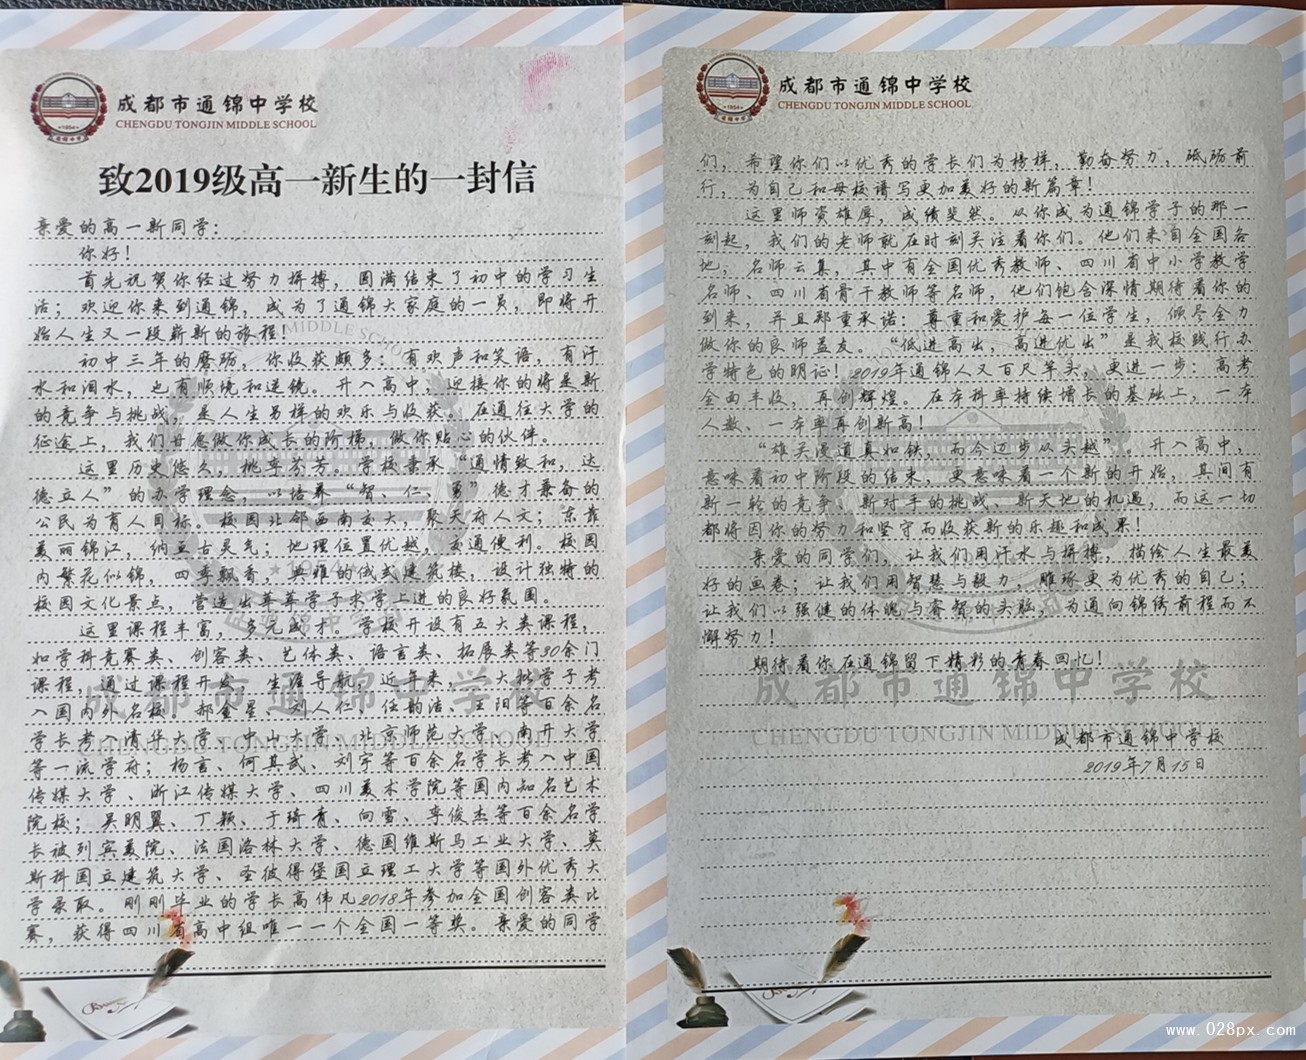 成都市通锦中学校
CHENGDU TONGJIN MIDDLE SCHOOL
致2019级高一新生的一封信
亲爱的高一新同学：
你好！
首先祝贺你经过努力拼搏，圆满结束了初中的学习生
活；欢迎你来到通锦，成为了通锦大家庭的一员，即将开
始人生又一段崭新的旅程！
初中三年的磨砺，你收获颇多：有欢声和笑语，有汗
水和泪水，也有顺境和逆镜。升入高中，迎接你的将是新
的竞争与挑战，是人生另样的欢乐与收获。在通往大学的
征途上，我们甘愿做你成长的阶梯，做你贴心的伙伴。
这里历史悠久，桃李芬芳。学校秉承“通情致和，达
德立人”的办学理念，以培养“智、仁、勇”德才兼备的
公民为育人目标。校园北邻西南交大，聚天府人文；东靠
美丽锦江，纳亘古灵气；地理位置优越，交通便利。校园
内繁花似锦，四季飘香，典雅的俄式建筑楼，设计独特的
校园文化景点，营造出莘莘学子求学上进的良好氛围。
这里课程丰富，多元成才。学校开设有五大类课程，
如学科竞赛类、创客类、艺体类、语言类、拓展类等30余门
课程，通过课程开发、生涯导航，近年来，一大批学子考
入国内外名校。郝金星、刘人仁、任韵洁、王阳等百余名
学长考入清华大学、中山大学、北京师范大学、南开大学
等一流学府；杨言、何其武、刘宇等百余名学长考入中国
传媒大学、浙江传媒大学、四川美术学院等国内知名艺术
院校；吴明翼、丁颖、于琦青、向雪、李俊杰等百余名学
长被列宾美院、法国洛林大学、德国维斯马工业大学、莫
斯科国立建筑大学、圣彼得堡国立理工大学等国外优秀大
学录取。刚刚毕业的学长高伟凡2018年参加全国创客类比
赛，获得四川省高中组唯一一个全国一等奖。亲爱的同学
成都市通锦中学校
CHENGDU TONGJIN MIDDLE SCHOOL
们，希望你们以优秀的学长们为榜样，勤奋努力，砥砺前
行，为自己和母校谱写更加美好的新篇章！
这里师资雄厚，成绩斐然。从你成为通锦学子的那一
刻起，我们的老师就在时刻关注着你们。他们来自全国各
地，名师云集，其中有全国优秀教师、四川省中小学教学
名师、四川省骨干教师等名师，他们饱含深情期待着你的
到来，并且郑重承诺：尊重和爱护每一位学生，倾尽全力
做你的良师益友。“低进高出，高进优出”是我校践行办
学特色的明证！2019年通锦人又百尺竿头，更进一步：高考
全面丰收，再创辉煌。在本科率持续增长的基础上，一本
人数、一本率再创新高！
“雄关漫道真如铁，而今迈步从头越”，升入高中，
意味着初中阶段的结束，更意味着一个新的开始，其间有
新一轮的竞争、新对手的挑战、新天地的机遇，而这一切
都将因你的努力和坚守而收获新的乐趣和成果！
亲爱的同学们，让我们用汗水与拼搏，描绘人生最美
好的画卷；让我们用智慧与毅力，雕琢更为优秀的自己；
让我们以强健的体魄与睿智的头脑，为通向锦绣前程而不
懈努力！
期待着你在通锦留下精彩的青春回忆！
成都市通锦中学校
2019年7月15日
www.028px.com